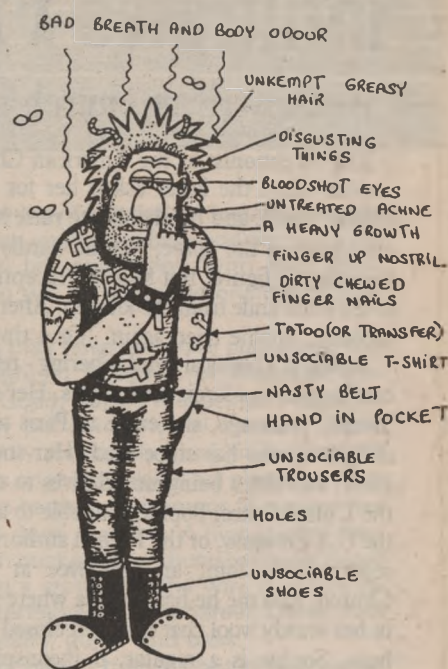 BAD BREATH AND BODY ODOUR
UNKEMPT GREASY
HAIR
DISGUSTING
THINGS
BLOODSHOT EYES
UNTREATED ACHNE
A HEAVY GROWTH
FINGER UP NOSTRIL.
DIRTY CHEWED
FINGER NAILS
TATOO (OR TRANSFER)
UNSOCIABLE T-SHIRT
NASTY BELT
HAND IN POCKET
UNSOCIABLE
TROUSERS
HOLES
UNSOCIABLE
SHOES